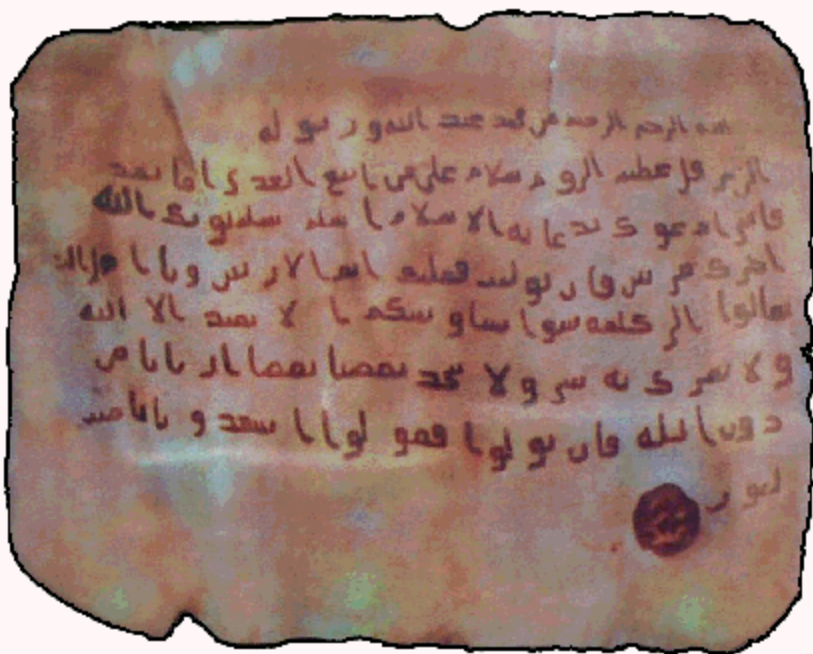 الله الرحمن الرحيم من محمد عبد الله و رسوله
الى هرقل عظيم الروم سلام على من اتبع الهدى اما بعد
فانى ادعوك بدعاية الاسلام اسلم تسلم يوتك الله
اجرك مرتين فان توليت فعليك اثم الاريسين ويا اهل
تعالوا الى كلمة سوا بيننا وبينكم ا لا نعبد الا الله
ولا نشرك به شيا ولا يتخذ بعضنا بعضا اربابا من
دون الله فان تولوا فقولوا اشهدوا بانا